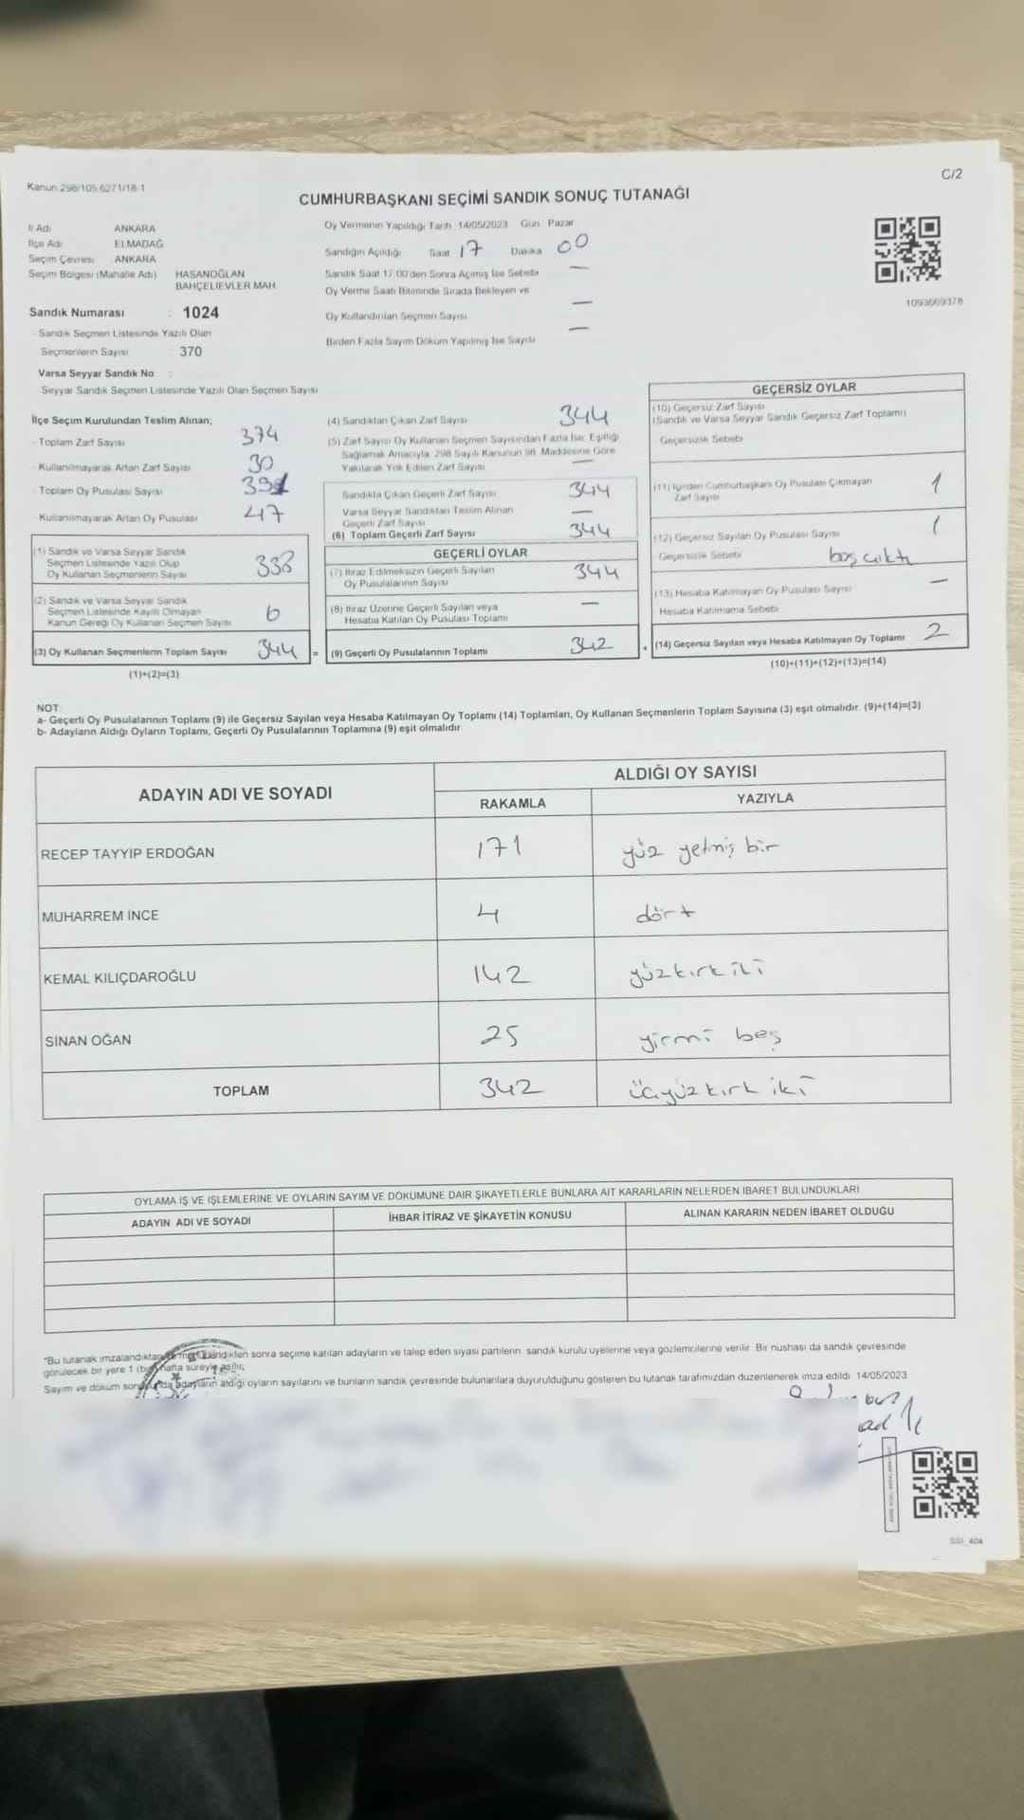 Kanun 298/105,6271/18-1
C/2
CUMHURBAŞKANI SEÇİMİ SANDIK SONUÇ TUTANAĞI
İl Adı ANKARA
İlçe Adı ELMADAĞ
Seçim Çevresi ANKARA
Seçim Bölgesi (Mahalle Adı) HASANOĞLAN
BAHÇELİEVLER MAH.
Sandık Numarası : 1024
Sandık Seçmen Listesinde Yazılı Olan
Seçmenlerin Sayısı : 370
Varsa Seyyar Sandık No :
Seyyar Sandık Seçmen Listesinde Yazılı Olan Seçmen Sayısı
Oy Vermenin Yapıldığı Tarih 14/05/2023 Gün Pazar
Sandığın Açıldığı Saat 17 Dakika 00
Sandık Saat 17.00'den Sonra Açılmış İse Sebebi —
Oy Verme Saati Bitiminde Sırada Bekleyen ve
Oy Kullandırılan Seçmen Sayısı —
Birden Fazla Sayım Döküm Yapılmış İse Sayısı —
1093669378
İlçe Seçim Kurulundan Teslim Alınan;
Toplam Zarf Sayısı 374
Kullanılmayarak Artan Zarf Sayısı 30
Toplam Oy Pusulası Sayısı
Kullanılmayarak Artan Oy Pusulası 47
(1) Sandık ve Varsa Seyyar Sandık
Seçmen Listesinde Yazılı Olup
Oy Kullanan Seçmenlerin Sayısı 338
(2) Sandık ve Varsa Seyyar Sandık
Seçmen Listesinde Kayıtlı Olmayan
Kanun Gereği Oy Kullanan Seçmen Sayısı 6
(3) Oy Kullanan Seçmenlerin Toplam Sayısı 344 =
(1)+(2)=(3)
(4) Sandıktan Çıkan Zarf Sayısı 344
(5) Zarf Sayısı Oy Kullanan Seçmen Sayısından Fazla İse, Eşitliği
Sağlamak Amacıyla 298 Sayılı Kanunun 98. Maddesine Göre
Yakılarak Yok Edilen Zarf Sayısı —
Sandıkta Çıkan Geçerli Zarf Sayısı 344
Varsa Seyyar Sandıktan Teslim Alınan
Geçerli Zarf Sayısı —
(6) Toplam Geçerli Zarf Sayısı 344
GEÇERLİ OYLAR
(7) İtiraz Edilmeksizin Geçerli Sayılan
Oy Pusulasının Sayısı 344
(8) İtiraz Üzerine Geçerli Sayılan veya
Hesaba Katılan Oy Pusulası Toplamı —
(9) Geçerli Oy Pusulalarının Toplamı 342 +
GEÇERSİZ OYLAR
(10) Geçersiz Zarf Sayısı
(Sandık ve Varsa Seyyar Sandık Geçersiz Zarf Toplamı)
Geçersizlik Sebebi
(11) İçinden Cumhurbaşkanı Oy Pusulası Çıkmayan
Zarf Sayısı 1
(12) Geçersiz Sayılan Oy Pusulası Sayısı 1
Geçersizlik Sebebi boş çıktı
(13) Hesaba Katılmayan Oy Pusulası Sayısı —
Hesaba Katılmama Sebebi
(14) Geçersiz Sayılan veya Hesaba Katılmayan Oy Toplamı 2
(10)+(11)+(12)+(13)=(14)
NOT:
a- Geçerli Oy Pusulalarının Toplamı (9) ile Geçersiz Sayılan veya Hesaba Katılmayan Oy Toplamı (14) Toplamları, Oy Kullanan Seçmenlerin Toplam Sayısına (3) eşit olmalıdır. (9)+(14)=(3)
b- Adayların Aldığı Oyların Toplamı, Geçerli Oy Pusulalarının Toplamına (9) eşit olmalıdır
ADAYIN ADI VE SOYADI ALDIĞI OY SAYISI
RAKAMLA YAZIYLA
RECEP TAYYİP ERDOĞAN 171 yüz yetmiş bir
MUHARREM İNCE 4 dört
KEMAL KILIÇDAROĞLU 142 yüzkırk iki
SİNAN OĞAN 25 yirmi beş
TOPLAM 342 üçyüz kırk iki
OYLAMA İŞ VE İŞLEMLERİNE VE OYLARIN SAYIM VE DÖKÜMÜNE DAİR ŞİKAYETLERLE BUNLARA AİT KARARLARIN NELERDEN İBARET BULUNDUKLARI
ADAYIN ADI VE SOYADI İHBAR İTİRAZ VE ŞİKAYETİN KONUSU ALINAN KARARIN NEDEN İBARET OLDUĞU
"Bu tutanak imzalandıktan sonra seçime katılan adayların ve talep eden siyasi partilerin sandık kurulu üyelerine veya gözlemcilerine verilir. Bir nüshası da sandık çevresinde
görülecek bir yere 1 (bir) hafta süreyle asılır.
Sayım ve döküm adayların aldığı oyların sayılarını ve bunların sandık çevresinde bulunanlara duyurulduğunu gösteren bu tutanak tarafımızdan düzenlenerek imza edildi 14/05/2023
SSI_404